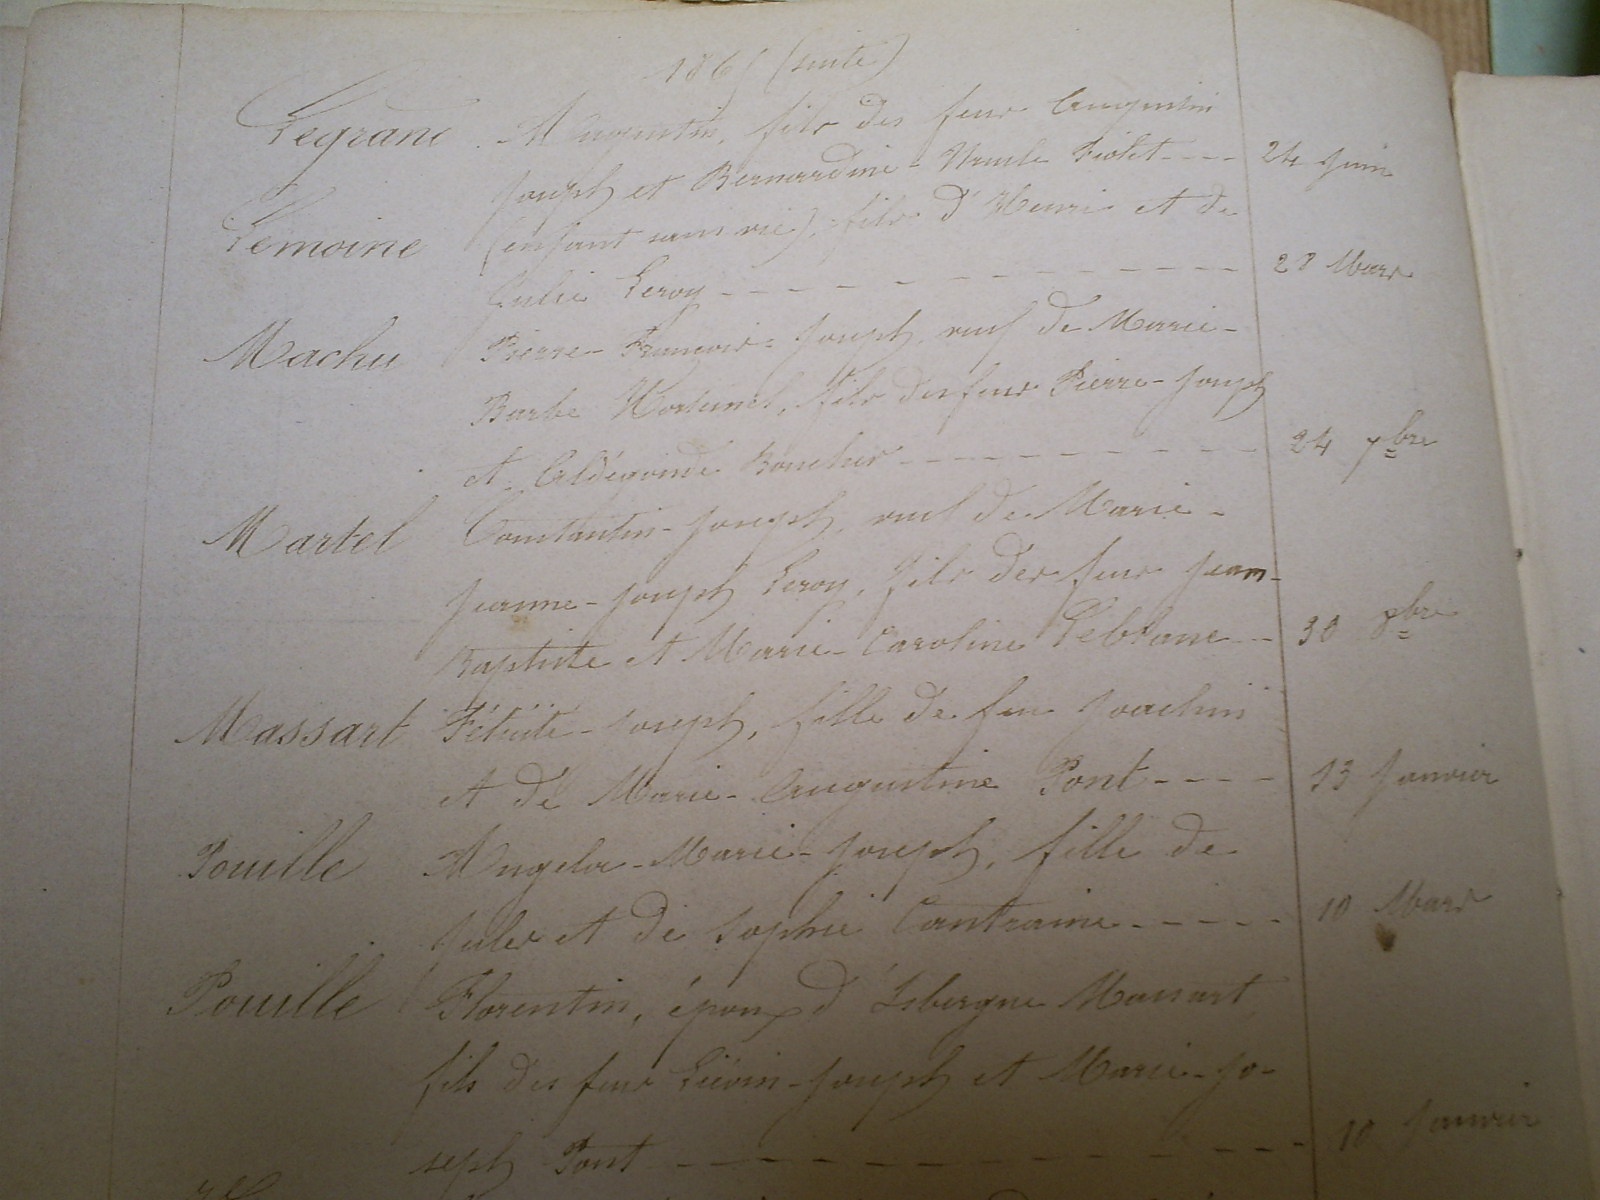 186 (suite)
Legrand Augustin, fils des feus Augustin
Joseph et Bernardine-Ursule Fiolet ---- 24 Juin
Lemoine (enfant sans vie), fils d'Henri et de
Julie Leroy ---- 28 Mars
Machu Pierre-François-Joseph, veuf de Marie-
Barbe fils des feus Pierre-Joseph
et Aldégonde Boucher ---- 24 7bre
Martel Constantin-Joseph, veuf de Marie-
Jeanne-Joseph Leroy, fils des feus Jean-
Baptiste et Marie-Caroline Leblanc -- 30 8bre
Massart Félicité-Joseph, fille de feu Joachim
et de Marie-Augustine Pont ---- 13 Janvier
Pouille Angela-Marie-Joseph, fille de
Jules et de Sophie Cantraine ---- 10 Mars
Pouille Florentin, époux d'Isbergue Massart,
fils des feus Liévin-Joseph et Marie-Jo-
seph Pont ---- 10 Janvier